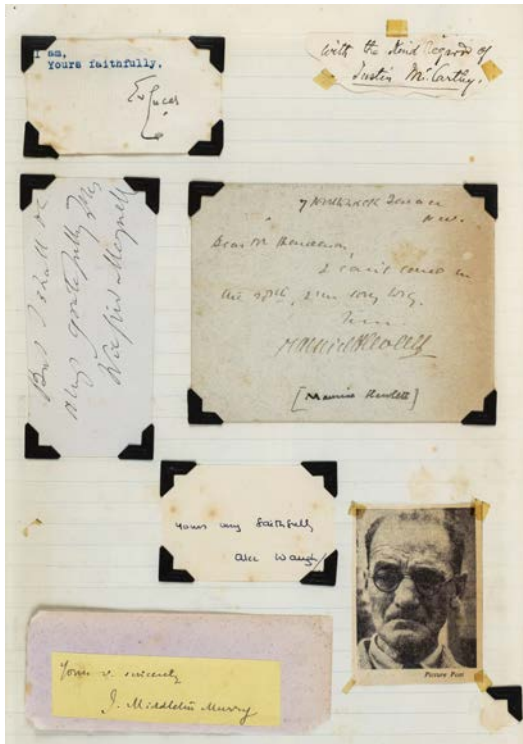 I am,
Yours faithfully.
E V Lucas
with the Kind Regards of
Justin McCarthy.
But I shall be
always gratefully yrs
Wilfrid Meynell
7 Northwick Terrace
N.W.
Dear Mr
I can't come on
the 29th, I'm sorry to say.
Maurice Hewlett
[Maurice Hewlett]
yours very faithfully
Alec Waugh
Yours v. sincerely
J. Middleton Murry
Picture Post